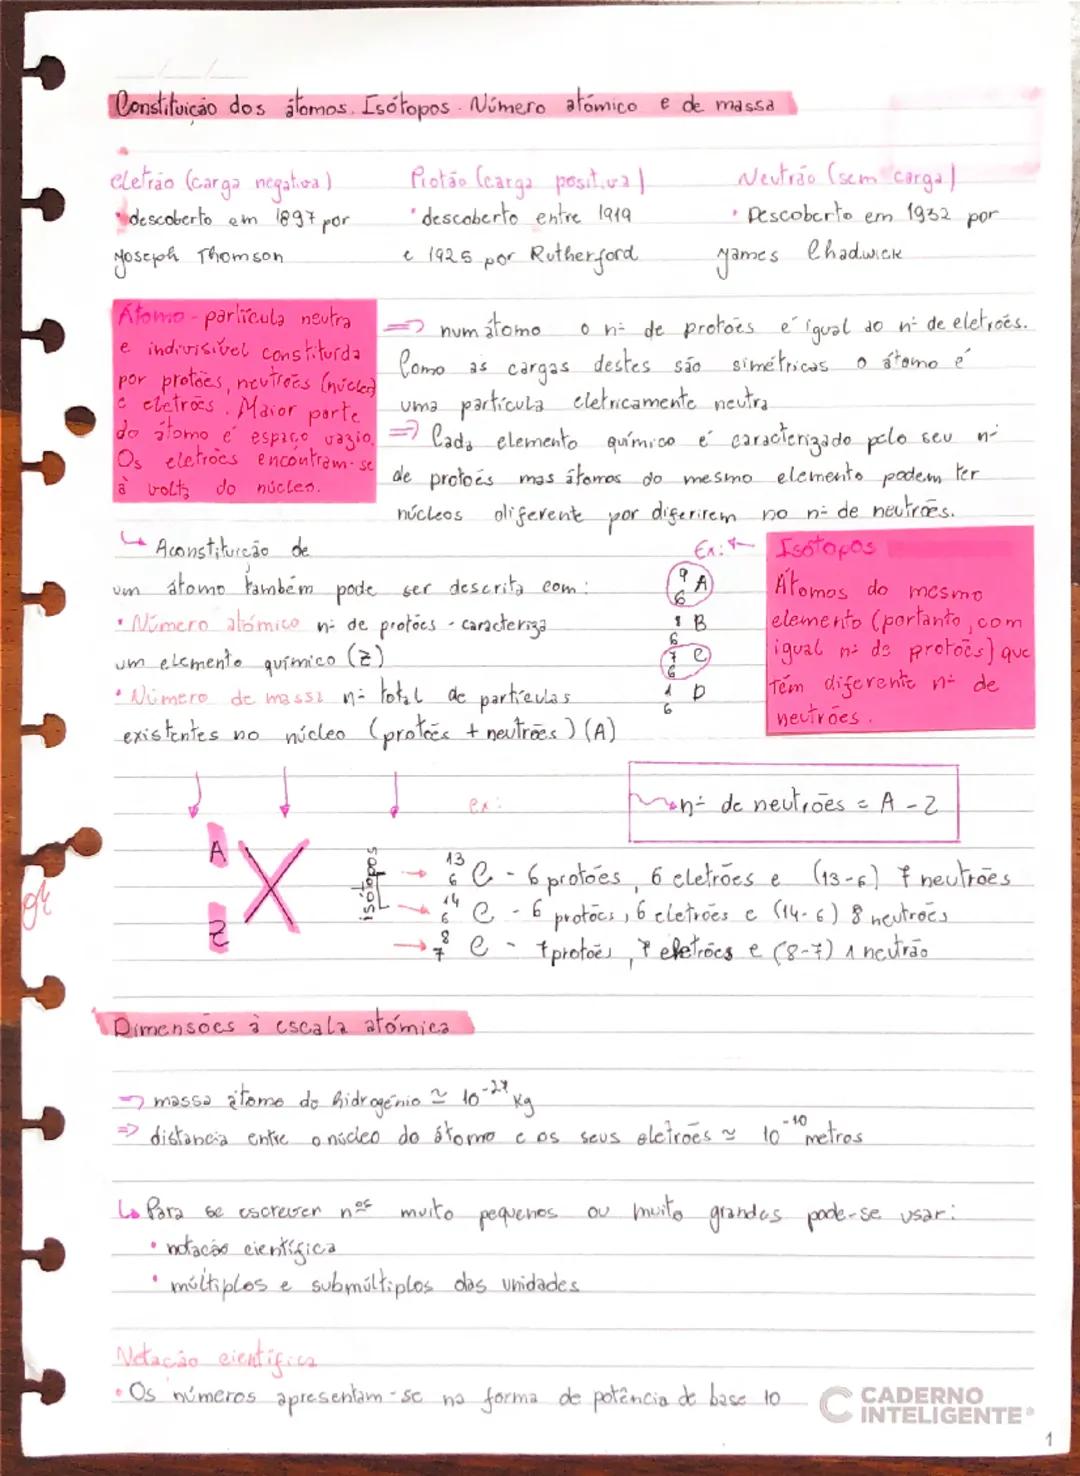 Constituição dos átomos. Isótopos. Número atómico e de massa
eletrão (carga negativa)
• descoberto em 1897 por
Joseph Thomson
Protão (carga positiva)
• descoberto entre 1919
e 1925 por Rutherford
Neutrão (sem carga)
• Descoberto em 1932 por
James Chadwick
Átomo - partícula neutra
e indivisível constituída
por protões, neutrões (núcleo)
e eletrões. Maior parte
do átomo é espaço vazio.
Os eletrões encontram-se
à volta do núcleo.
⇒ num átomo o nº de protões é igual ao nº de eletrões.
Como as cargas destes são simétricas o átomo é
uma partícula eletricamente neutra
⇒ Cada elemento químico é caracterizado pelo seu nº
de protões mas átomos do mesmo elemento podem ter
núcleos diferente por diferirem no nº de neutrões.
↳ A constituição de
um átomo também pode ser descrita com:
• Número atómico nº de protões - caracteriza
um elemento químico (Z)
• Número de massa nº total de partículas
existentes no núcleo (protões + neutrões) (A)
Ex:
9 A
6
8 B
6
7 C
6
1 D
6
Isótopos
Átomos do mesmo
elemento (portanto, com
igual nº de protões) que
têm diferente nº de
neutrões.
nº de neutrões = A - Z
A
X
Z
ex:
isótopos
13
6 C - 6 protões, 6 eletrões e (13-6) 7 neutrões
14
6 C - 6 protões, 6 eletrões e (14-6) 8 neutrões
8
7 C - 7 protões, 7 eletrões e (8-7) 1 neutrão
Dimensões à escala atómica
⇒ massa átomo do hidrogénio ≃ 10⁻²⁷ kg
⇒ distancia entre o núcleo do átomo e os seus eletrões ≃ 10⁻¹⁰ metros
↳ Para se escrever nºs muito pequenos ou muito grandes pode-se usar:
• notação científica
• múltiplos e submúltiplos das unidades
Notação científica
• Os números apresentam-se na forma de potência de base 10
CADERNO
INTELIGENTE®
1